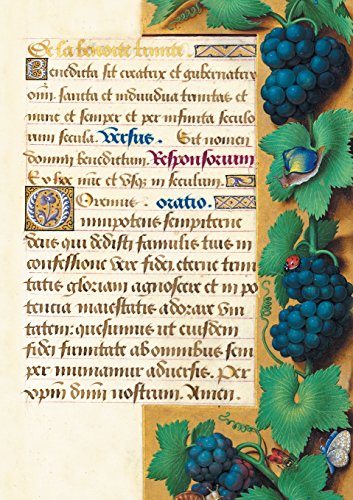 De la benoite trinite
Benedicta sit creatrix et gubernatrix
omni. sancta et individua trinitas et
nunc et semper et per infinita seculo
rum secula. Versus. Sit nomen
domini benedictum. Responsorium
Ex hoc nunc et usq; in seculum.
Oremus. oratio.
Omnipotens sempiterne
deus qui dedisti famulis tuis in
confessione vere fidei eterne trini
tatis gloriam agnoscere et in po
tencia maiestatis adorare vni
tatem: quesumus ut eiusdem
fidei firmitate ab omnibus sem
per muniamur adversis. Per
xpm dnm nostrum. Amen.